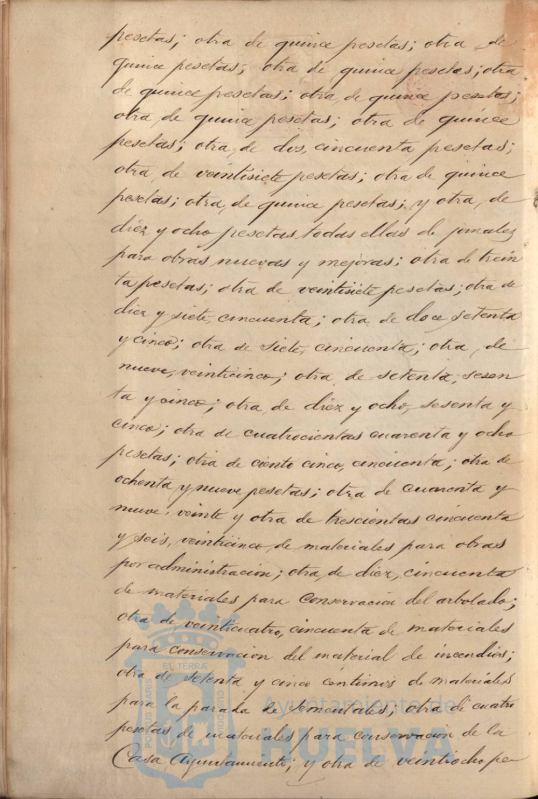 pesetas; otra de quince pesetas; otra de
quince pesetas; otra de quince pesetas; otra
de quince pesetas; otra de quince pesetas;
otra de quince pesetas; otra de quince
pesetas; otra de dos, cincuenta pesetas;
otra de veintisiete pesetas; otra de quince
pesetas; otra de quince pesetas; y otra de
diez y ocho pesetas todas ellas de jornales
para obras nuevas y mejoras; otra de trein
ta pesetas; otra de veintisiete pesetas; otra de
diez y siete, cincuenta; otra de doce setenta
y cinco; otra de siete, cincuenta; otra de
nueve, veinticinco; otra de setenta, sesen
ta y cinco; otra de diez y ocho, sesenta y
cinco; otra de cuatrocientas cuarenta y ocho
pesetas; otra de ciento cinco, cincuenta; otra de
ochenta y nueve pesetas; otra de cuarenta y
nueve, veinte y otra de trescientas cincuenta
y seis, veinticinco, de materiales para obras
por administración; otra de diez, cincuenta
de materiales para conservación del arbolado;
otra de veinticuatro, cincuenta de materiales
para conservación del material de incendios;
otra de setenta y cinco céntimos de materiales
para la parada de sementales; otra de cuatro
pesetas de materiales para conservación de la
Casa Ayuntamiento; y otra de veintiocho pe
Ayuntamiento de
HUELVA